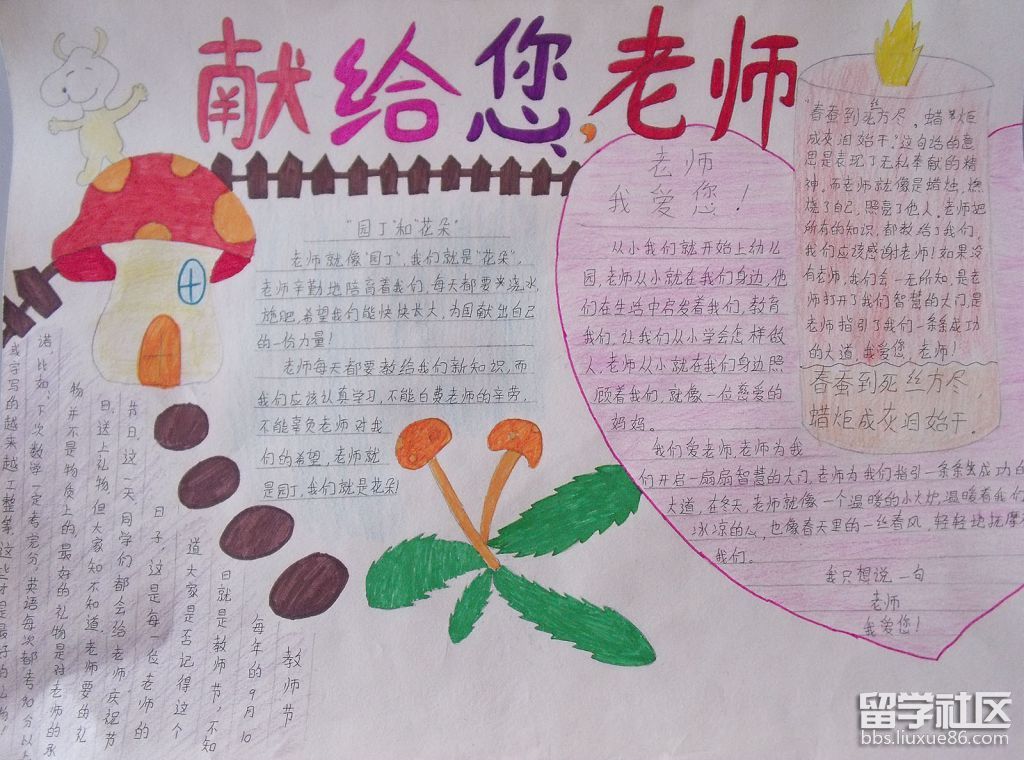 献给您，老师
"园丁"和"花朵"
老师就像"园丁"，我们就是"花朵"，
老师辛勤地陪育着我们，每天都要来浇水，
施肥，希望我们能快快长大，为国献出自己
的一份力量！
老师每天都要教给我们新知识，而
我们应该认真学习，不能白费老师的辛劳，
不能辜负老师对我
们的希望，老师就
是园丁，我们就是花朵！
老师
我爱您！
从小我们就开始上幼儿
园，老师从小就在我们身边，他
们在生活中启发着我们，教育
我们，让我们从小学会怎样做
人，老师从小就在我们身边照
顾着我们，就像一位慈爱的
妈妈。
我们爱老师，老师为我
们开启一扇扇智慧的大门，老师为我们指引一条条成功的
大道，在冬天，老师就像一个温暖的小火炉，温暖着我们
冰凉的心，也像春天里的一丝春风，轻轻地抚摩
我们。
我只想说一句
老师
我爱您！
"春蚕到死丝方尽，蜡炬
成灰泪始干。"这句话的意
思是表现了无私奉献的精
神，而老师就像是蜡烛，燃
烧了自己，照亮了他人，老师把
所有的知识，都教给了我们，
我们应该感谢老师！如果没
有老师，我们会一无所知，是老
师打开了我们智慧的大门，是
老师指引了我们一条条成功
的大道，我爱您，老师！
春蚕到死丝方尽，
蜡炬成灰泪始干。
教师节
每年的9月10
日就是教师节，不知
道大家是否记得这个
日子，这是每一位老师的
节日，这一天同学们都会给老师庆祝节
日，送上礼物，但大家知不知道，老师要的礼
物并不是物质上的，最好的礼物是对老师的承
诺，比如：下次数学一定考完分，英语每次都考90分以上
或字写的越来越工整等，这些才是最好的礼物！
留学社区
bbs.liuxue86.com